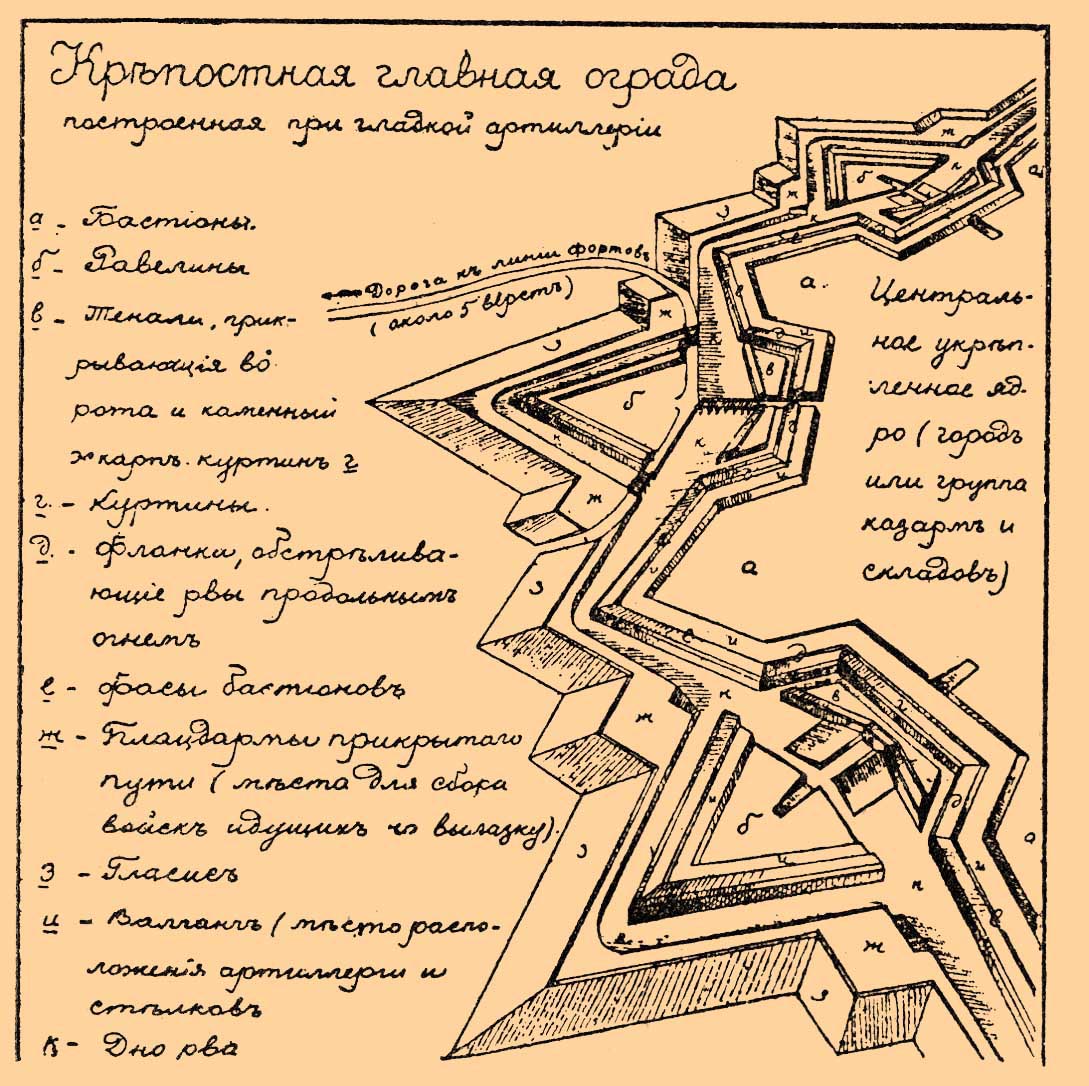 Крѣпостная главная ограда
построенная при гладкой артиллеріи
а - Бастіоны.
б - Равелины
в - Тенали, прик-
рывающія во-
рота и каменный
эскарпъ куртинъ г
г. - Куртины.
д. - Фланки, обстрѣлива-
ющіе рвы продольнымъ
огнемъ
е - Фасы бастіоновъ
ж - Плацдармы прикрытаго
пути (мѣста для сбора
войскъ идущихъ на вылазку).
з - Гласисъ
и - Валгангъ (мѣсто распо-
ложенія артиллеріи и
стрѣлковъ
к - Дно рва
Дорога къ линіи фортовъ
(около 5 верстъ)
Централь-
ное укрѣп-
ленное яд-
ро (городъ
или группа
казармъ и
складовъ)